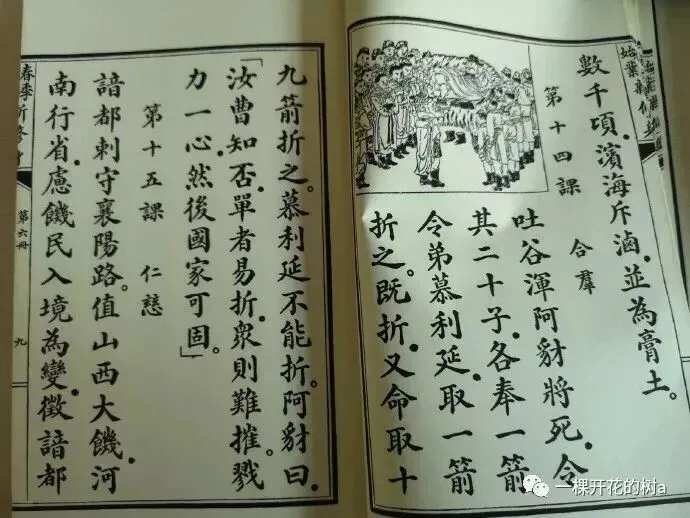 數千項.濱海斥滷.並為膏土。
第十四課 合羣
吐谷渾阿豺將死.令
其二十子.各奉一箭.
令弟慕利延.取一箭
折之.既折.又命取十
九箭折之。慕利延不能折.阿豺曰.
「汝曹知否.單者易折.衆則難摧.戮
力一心.然後國家可固。」
第十五課 仁慈
諳都剌守襄陽路.值山西大饑.河
南行省.慮饑民入境為變.徵諳都
春季
第六冊
九
一棵开花的树a